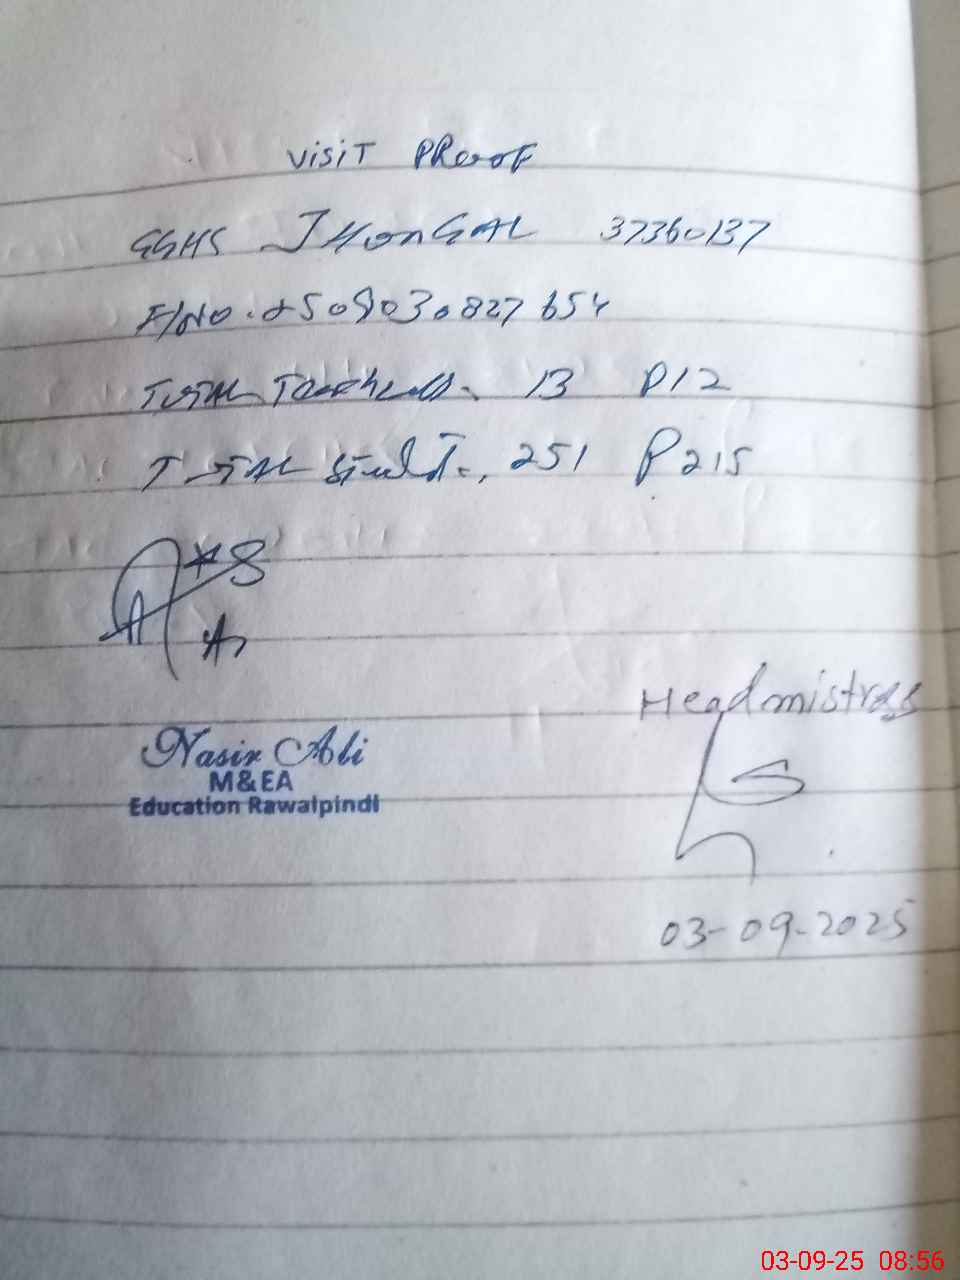 VisiT PRooF
GGHS JHonGAL 37360137
F/No. 2509030827654
ToTAL Teachers. 13 P12
ToTAL Student., 251 P215
Headmistress
Nasir Ali
M&EA
Education Rawalpindi
03-09-2025
03-09-25 08:56